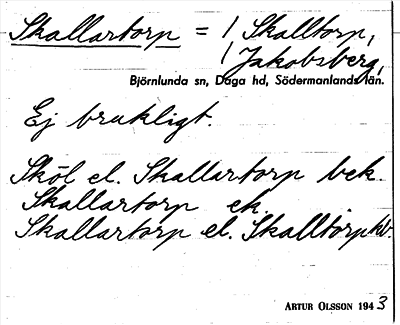 Skallartorp = / Skalltorp,
/ Jakobsberg,
Björnlunda sn, Daga hd, Södermanlands län.
Ej brukligt.
Sköl el. Skallartorp bek.
Skallartorp ek.
Skallartorp el. Skalltorp kb.
ARTUR OLSSON 1943